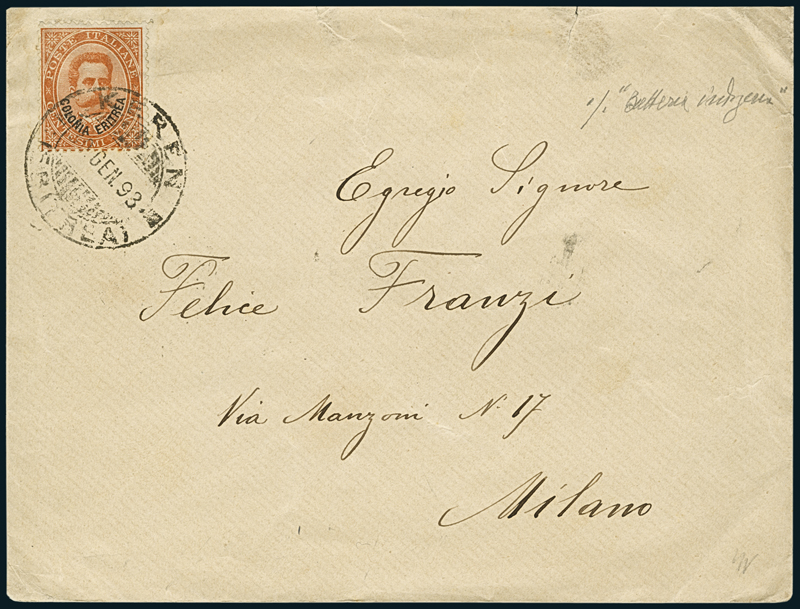 POSTE ITALIANE
COLONIA ERITREA
CENTESIMI VENTI
KEREN
GEN. 93
(ERITREA)
"Batteria indigena"
Egregio Signore
Felice Franzi
Via Manzoni N. 17
Milano